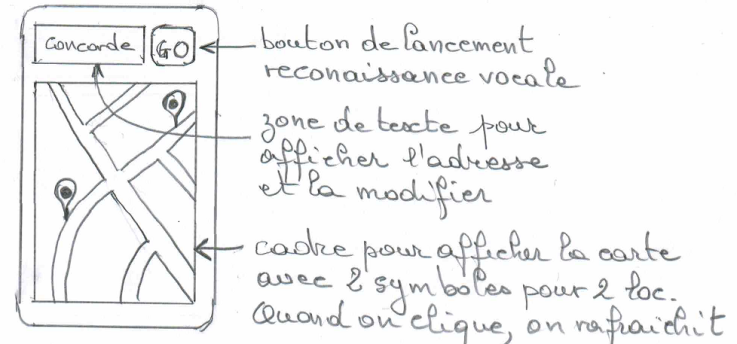 Concorde GO
bouton de lancement
reconaissance vocale
zone de texte pour
afficher l'adresse
et la modifier
cadre pour afficher la carte
avec 2 symboles pour 2 loc.
Quand on clique, on rafraichit